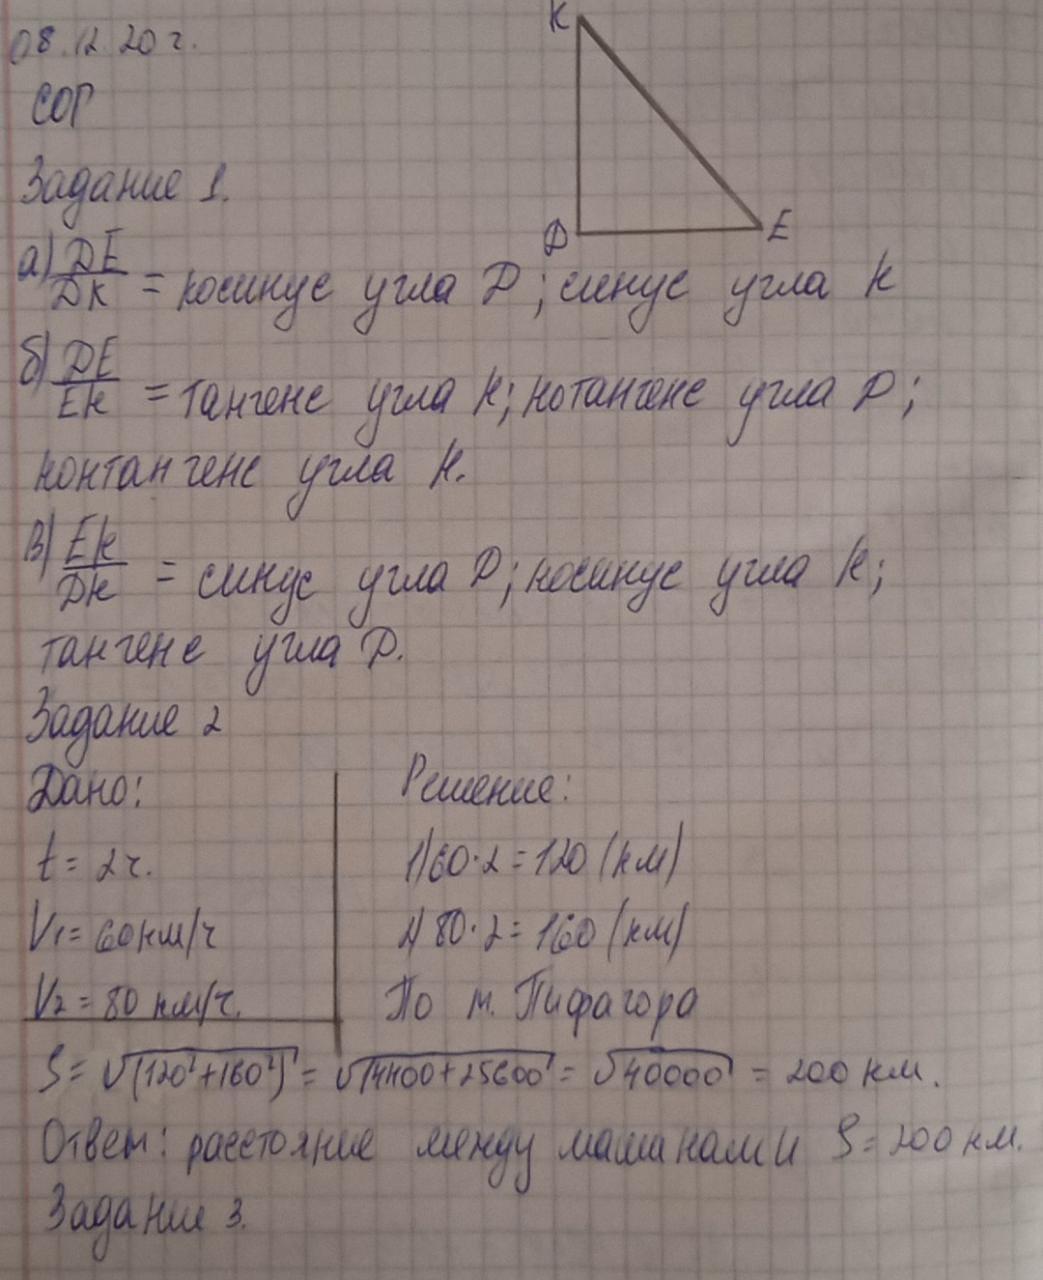 08.12.20 г.
СОР
Задание 1.
К
D
E
а) DE/DK = косинус угла D; синус угла К
б) DE/EK = тангенс угла К; котангенс угла D;
контангенс угла К.
в) EK/DK = синус угла D; косинус угла К;
тангенс угла D.
Задание 2
Дано:
t = 2 ч.
V1 = 60 км/ч
V2 = 80 км/ч.
Решение:
1) 60·2 = 120 (км)
2) 80·2 = 160 (км)
По т. Пифагора
S = √(120²+160²) = √14400+25600 = √40000 = 200 км.
Ответ: расстояние между машинами S = 200 км.
Задание 3.